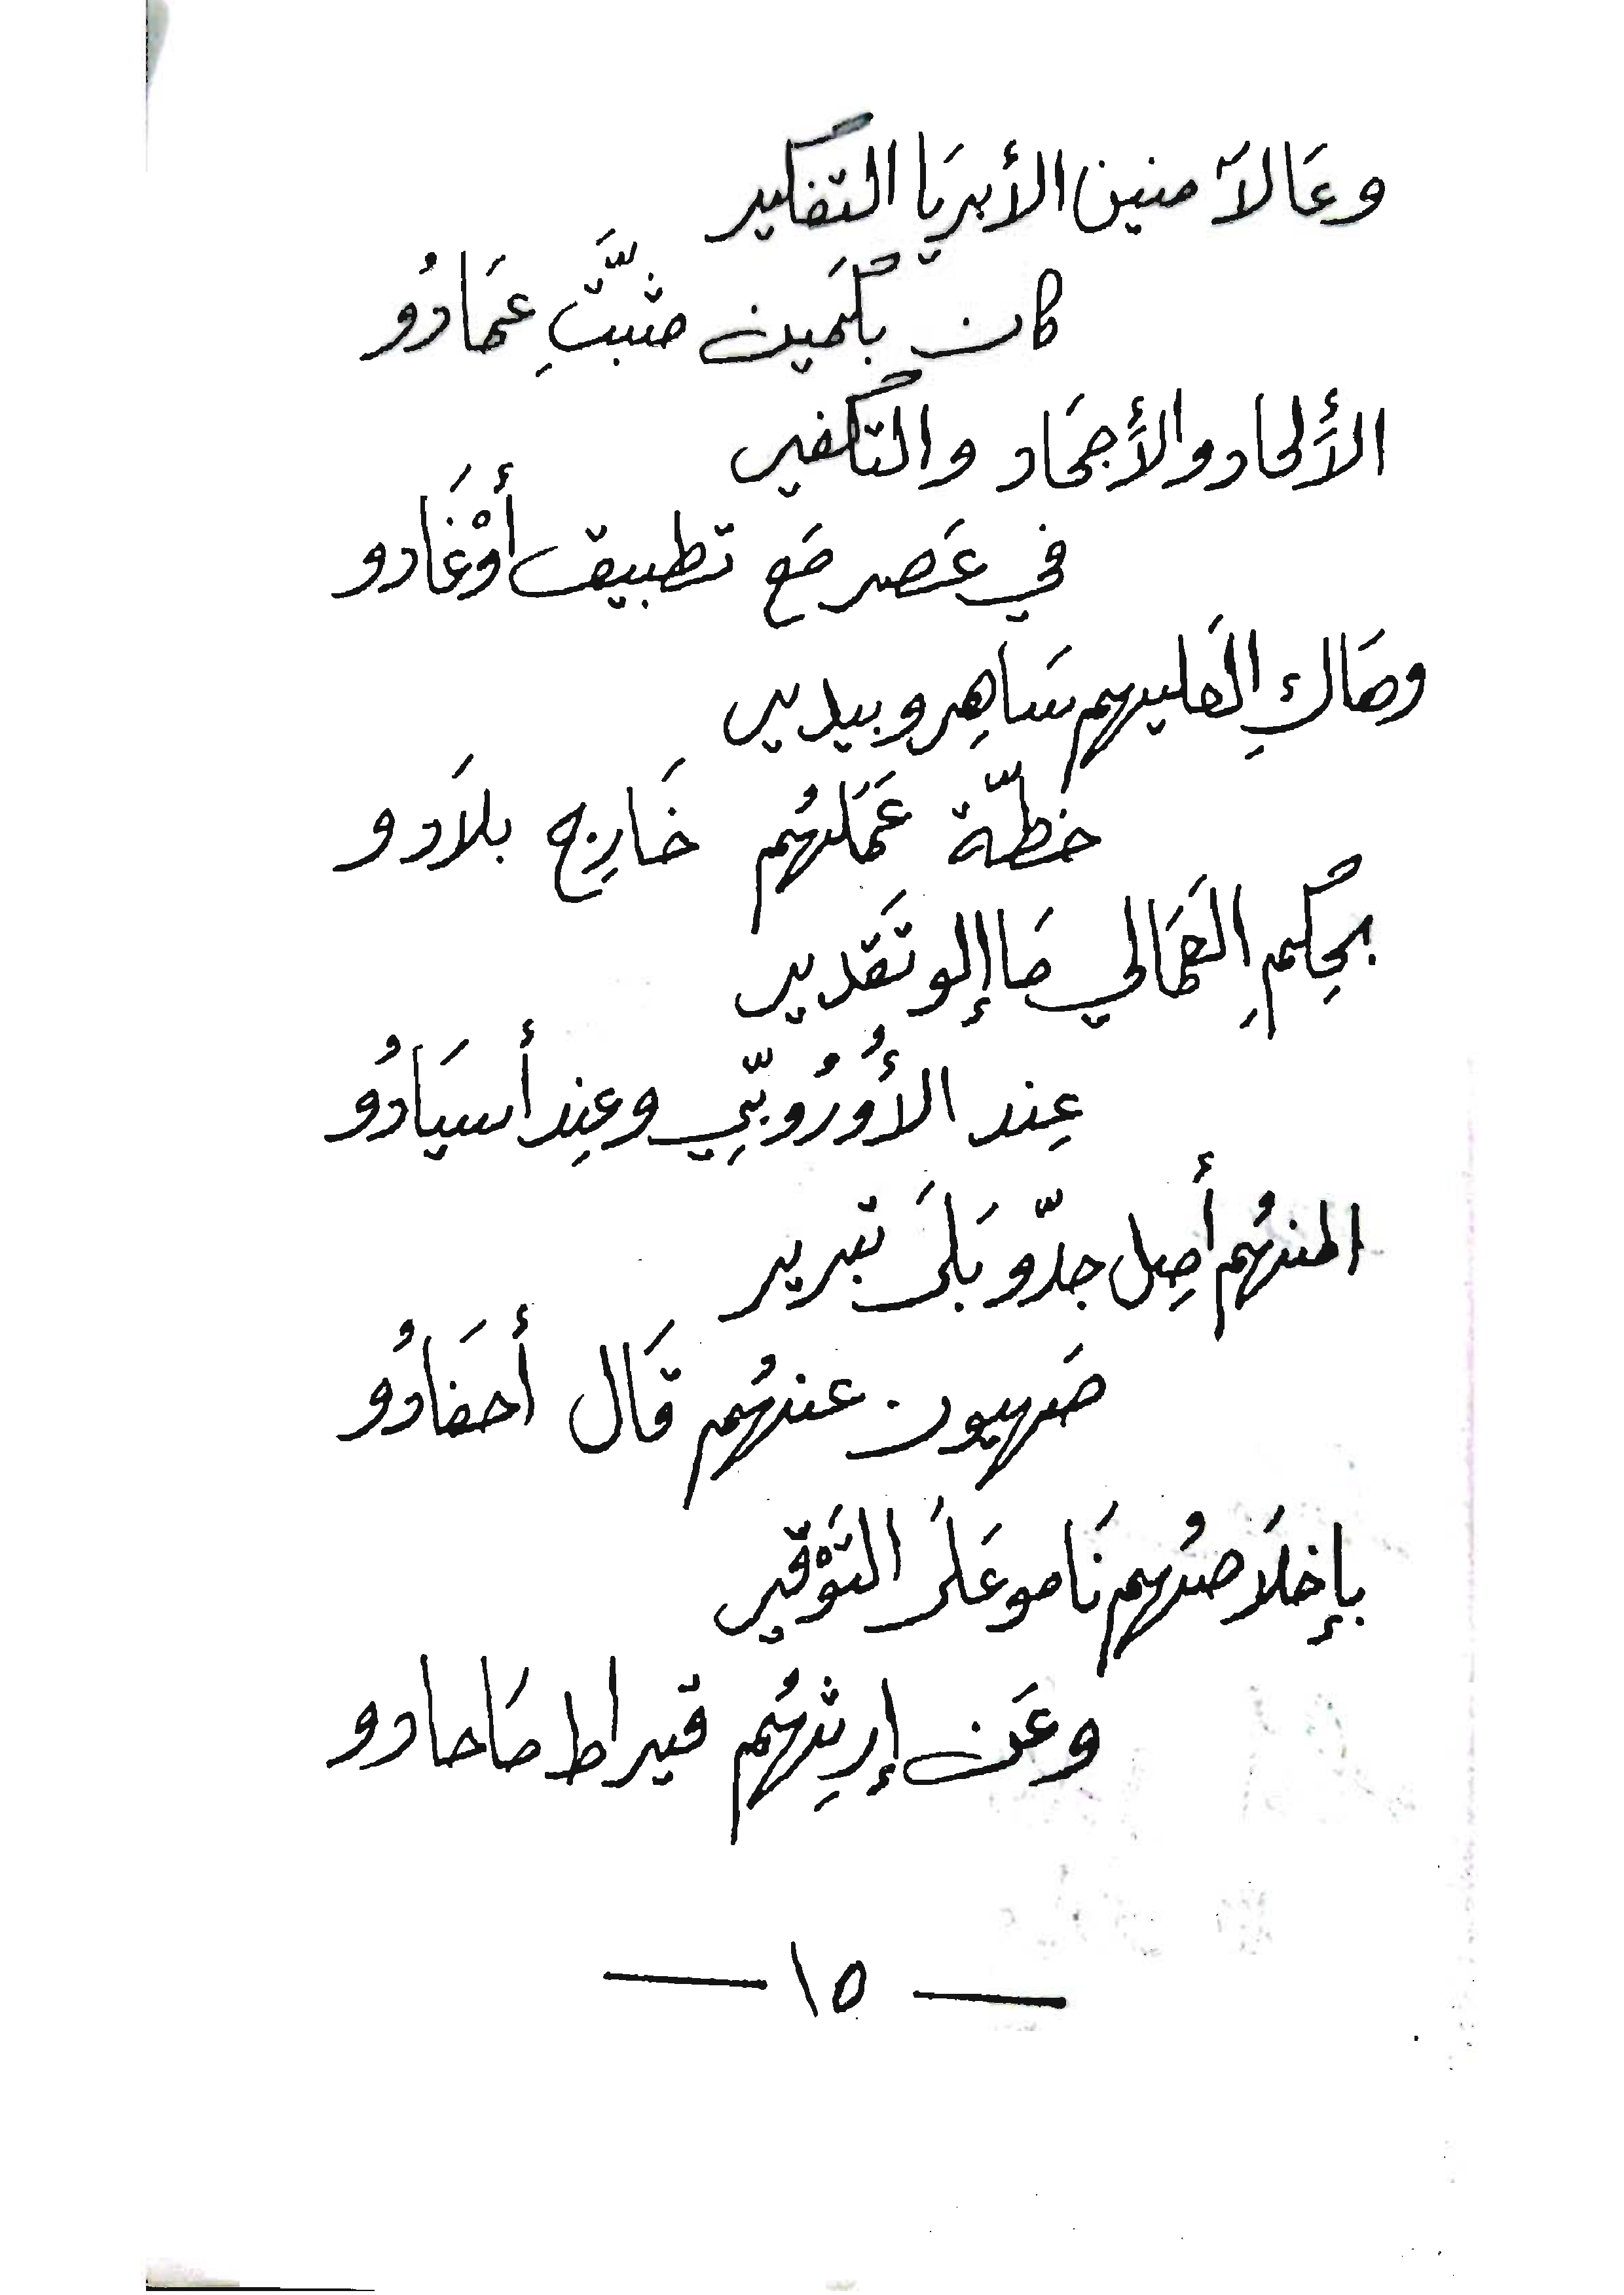 وعَالآمنين الأبريَا التفكير
كان بكَمين مثبتِّ عمَادُو
الأَلحاد والأَجحَاد والتكفير
في عَصر مَع تطبيق أوْغَادو
وهَاكِ العَليهم سَاهِر وبيدير
خطّة عَمَلهُم خَارِج بلاَدو
بحِكمِ العَمَالي مَا إلو تَقدير
عِند الأُوُرُوبّي وعِند أسيَادُو
المنهُم أصِل جدّو بَلىَ تبرير
صَهيون عندهُم قَال أحفَادُو
بإخلاَصهُم نَامو عَلىَ التَوْقير
وعَن إرثِهُم قيراط مَاحادو
— ١٥ —